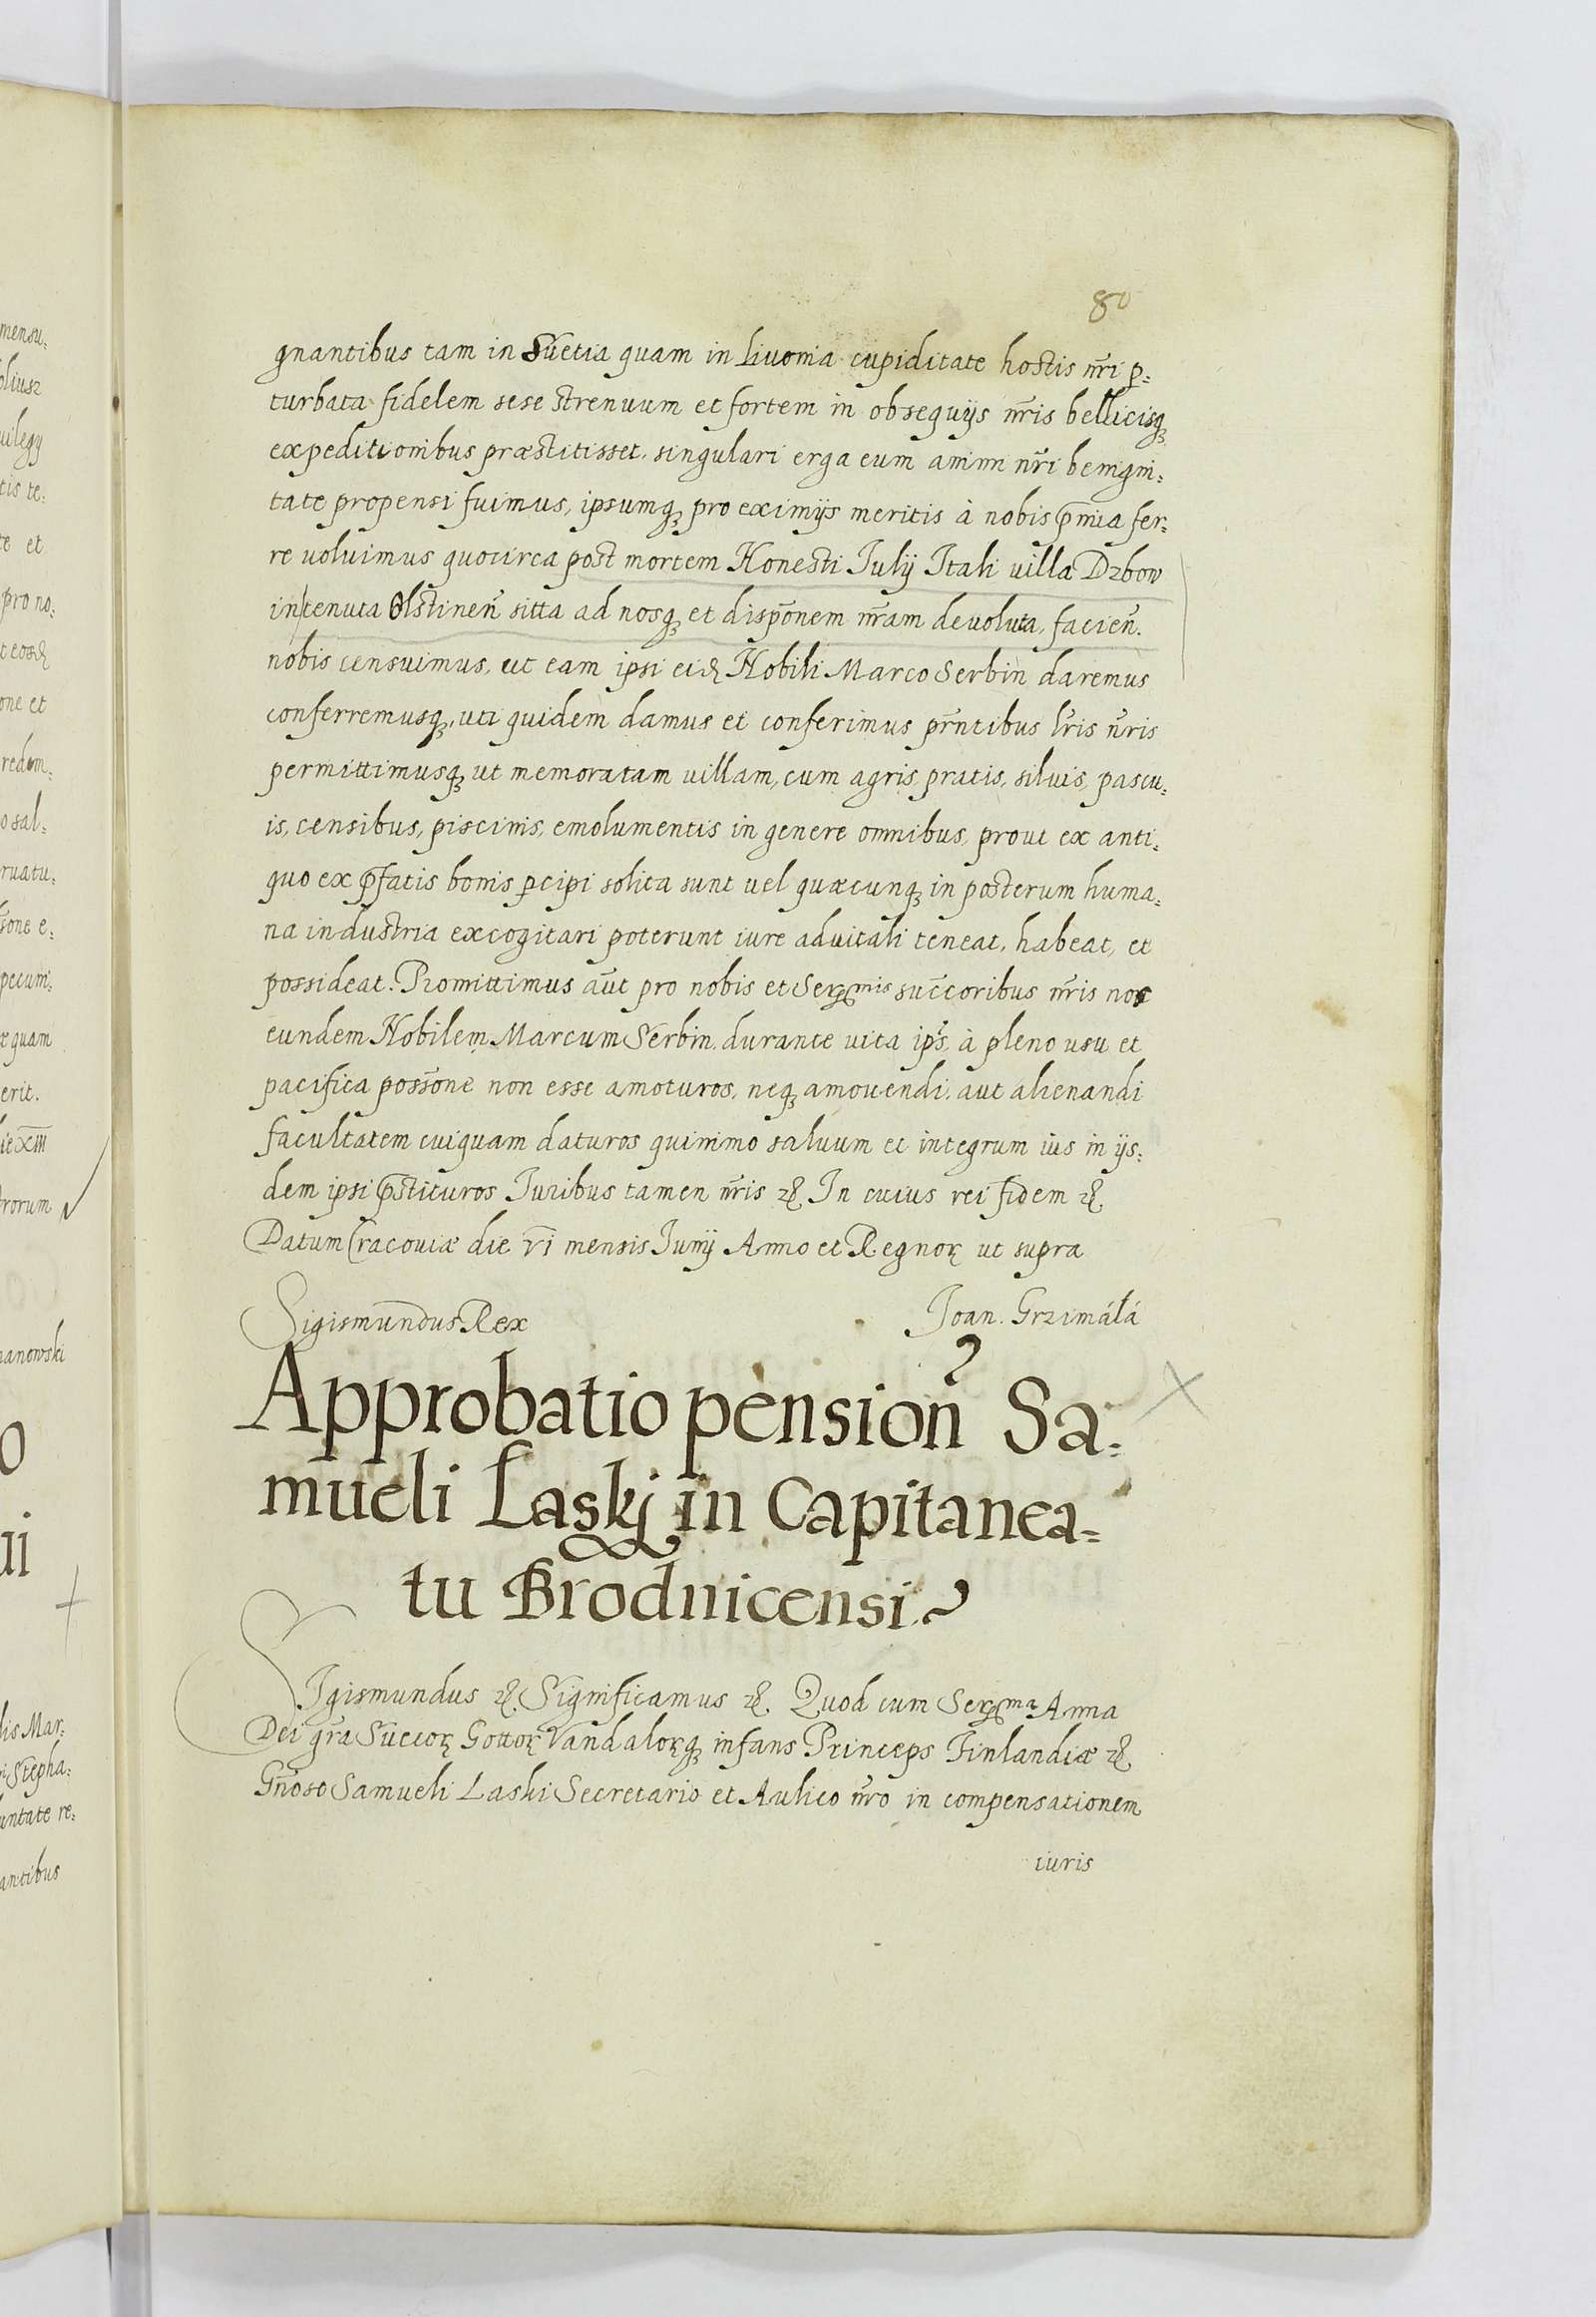 80
gnantibus tam in Suetia quam in Livonia cupiditate hostis nr̃i p̱=
turbata fidelem sese strenuum et fortem in obsequijs nr̃is bellicisqꝫ
expeditionibus præstitisset, singulari erga eum animi nr̃i benigni=
tate propensi fuimus, ipsumqꝫ pro eximijs meritis à nobis p̃mia fer=
re voluimus quocirca post mortem Honesti Julij Itali villa Dzbow
in tenuta Olstineñ sitta ad nosqꝫ et disp̃onem nr̃am devoluta, facieñ.
nobis censuimus, ut eam ipsi eidꝫ Nobili Marco Serbin daremus
conferremusqꝫ, uti quidem damus et conferimus pr̃ntibus lr̃is nr̃is
permittimusqꝫ ut memoratam villam, cum agris, pratis, silvis, pascu=
is, censibus, piscinis, emolumentis in genere omnibus, prout ex anti=
quo ex p̃fatis bonis p̱cipi solita sunt vel quæcunqꝫ in posterum huma=
na industria excogitari poterunt iure advitali teneat, habeat, et
possideat. Promittimus aũt pro nobis et Serꝫmis succ̃oribus nr̃is nos
eundem Nobilem Marcum Serbin, durante vita ip̃s, à pleno usu et
pacifica poss̃one non esse amoturos, neqꝫ amovendi, aut alienandi
facultatem cuiquam daturos quinimo salvum et integrum ius in ijs=
dem ipsi p̃stituros Juribus tamen nr̃is ꝛc̃. In cuius rei fidem ꝛc̃.
Datum Cracoviæ die vi mensis Junij Anno et Regnoꝝ ut supra
Sigismundus Rex Joan. Grzimáłá
Approbatio pension̾ Sa=
mueli Laskj in Capitanea=
tu Brodnicensi.
SIgismundus ꝛc̃. Significamus ꝛc̃. Quod cum Serꝫma Anna
Dei gr̃a Sueccoꝝ Gottoꝝ Vandaloꝝqꝫ infans Princeps Finlandiæ ꝛc̃.
Gñoso Samueli Laski Secretario et Aulico nr̃o in compensationem
iuris